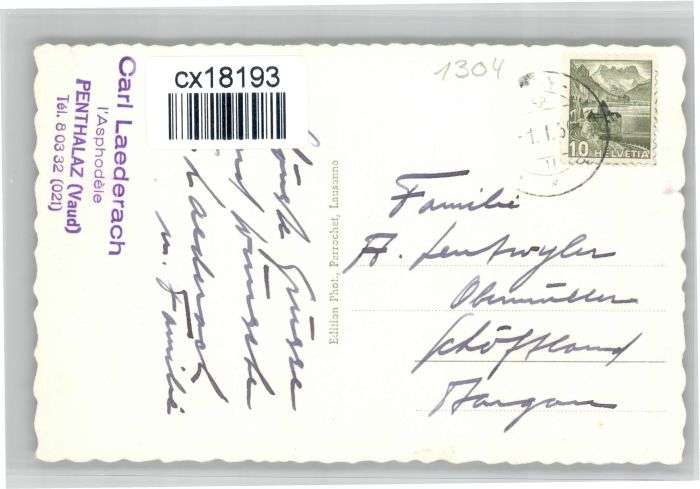 Carl Laederach
l'Asphodèle
PENTHALAZ (Vaud)
Tél. 8 03 32 (021)
cx18193
1304
10 HELVETIA
-1.I.5
Grüsse
Wünsche
Laederach
m. Familie
Edition Phot. Perrochet, Lausanne
Familie
A. Lentwyler
Obermüller
Schöftland
Aargau